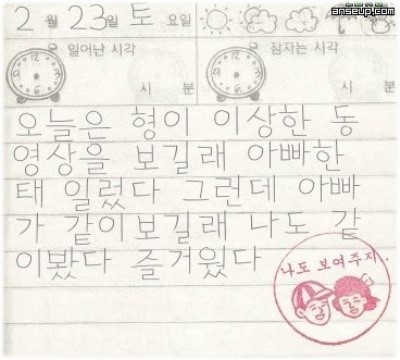 www.anseup.com
2 월 23일 토 요일
일어난 시각
잠자는 시각
시 분
시 분
오늘은 형이 이상한 동
영상을 보길래 아빠한
태 일렀다 그런데 아빠
가 같이보길래 나도 같
이봤다 즐거웠다
나도 보여주지.